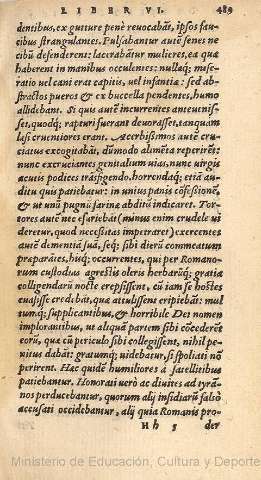 LIBER VI.
489
dentibus, ex gutture penè revocabāt, ipsos fau-
cibus strangulantes. Pulsabantur autē senes ne
cibū defenderent: lacerabātur mulieres, ea quæ
haberent in manibus occulentes: nullaq; mise-
ratio vel cani erat capitis, vel infantiæ: sed ab-
stractos pueros & ex buccella pendentes, humo
allidebant. Si quis autē incurrentes anteuenis-
set, quodq; rapturi fuerant devorasset, tanquam
læsi crudeliores erant. Acerbissimos autē cru-
ciatus excogitabāt, dūmodo alimēta reperirēt:
nunc excruciames genitalium vias, nunc virgis
acutis podices trāsfigendo, horrendaq; etiā au-
ditu quis patiebatur: in unius panis cōfessionē,
& ut unū pugnū farinæ abditū indicaret. Tor-
tores autē nec esuriebāt (minus enim crudele vi
deretur, quod necessitas impetraret) exercentes
autē dementiā suā, seq; sibi dierū commeatum
preparātes, huq; occurrentes, qui per Romano-
rum custodias agrestiū oleris herbarūq; gratia
colligendarū nocte erepsissent, cū iam se hostes
euasisse credebāt, quæ attulissent eripiebāt: mul
tumq; supplicantibus, & horribile Dei nomen
implorantibus, ut aliquā partem sibi cōcederēt
eorū, quæ cū periculo sibi collegissent, nihil pe-
nitus dabāt: gratumq; uidebatur, si spoliati nō
perirent. Hæc quidē humiliores à satellitibus
patiebantur. Honorati verò ac diuites ad tyrā-
nos perducebantur, quorum alij insidiarū falsò
accusati occidebantur, alij quia Romanis pro-
Hh 5 der
Ministerio de Educación, Cultura y Deporte